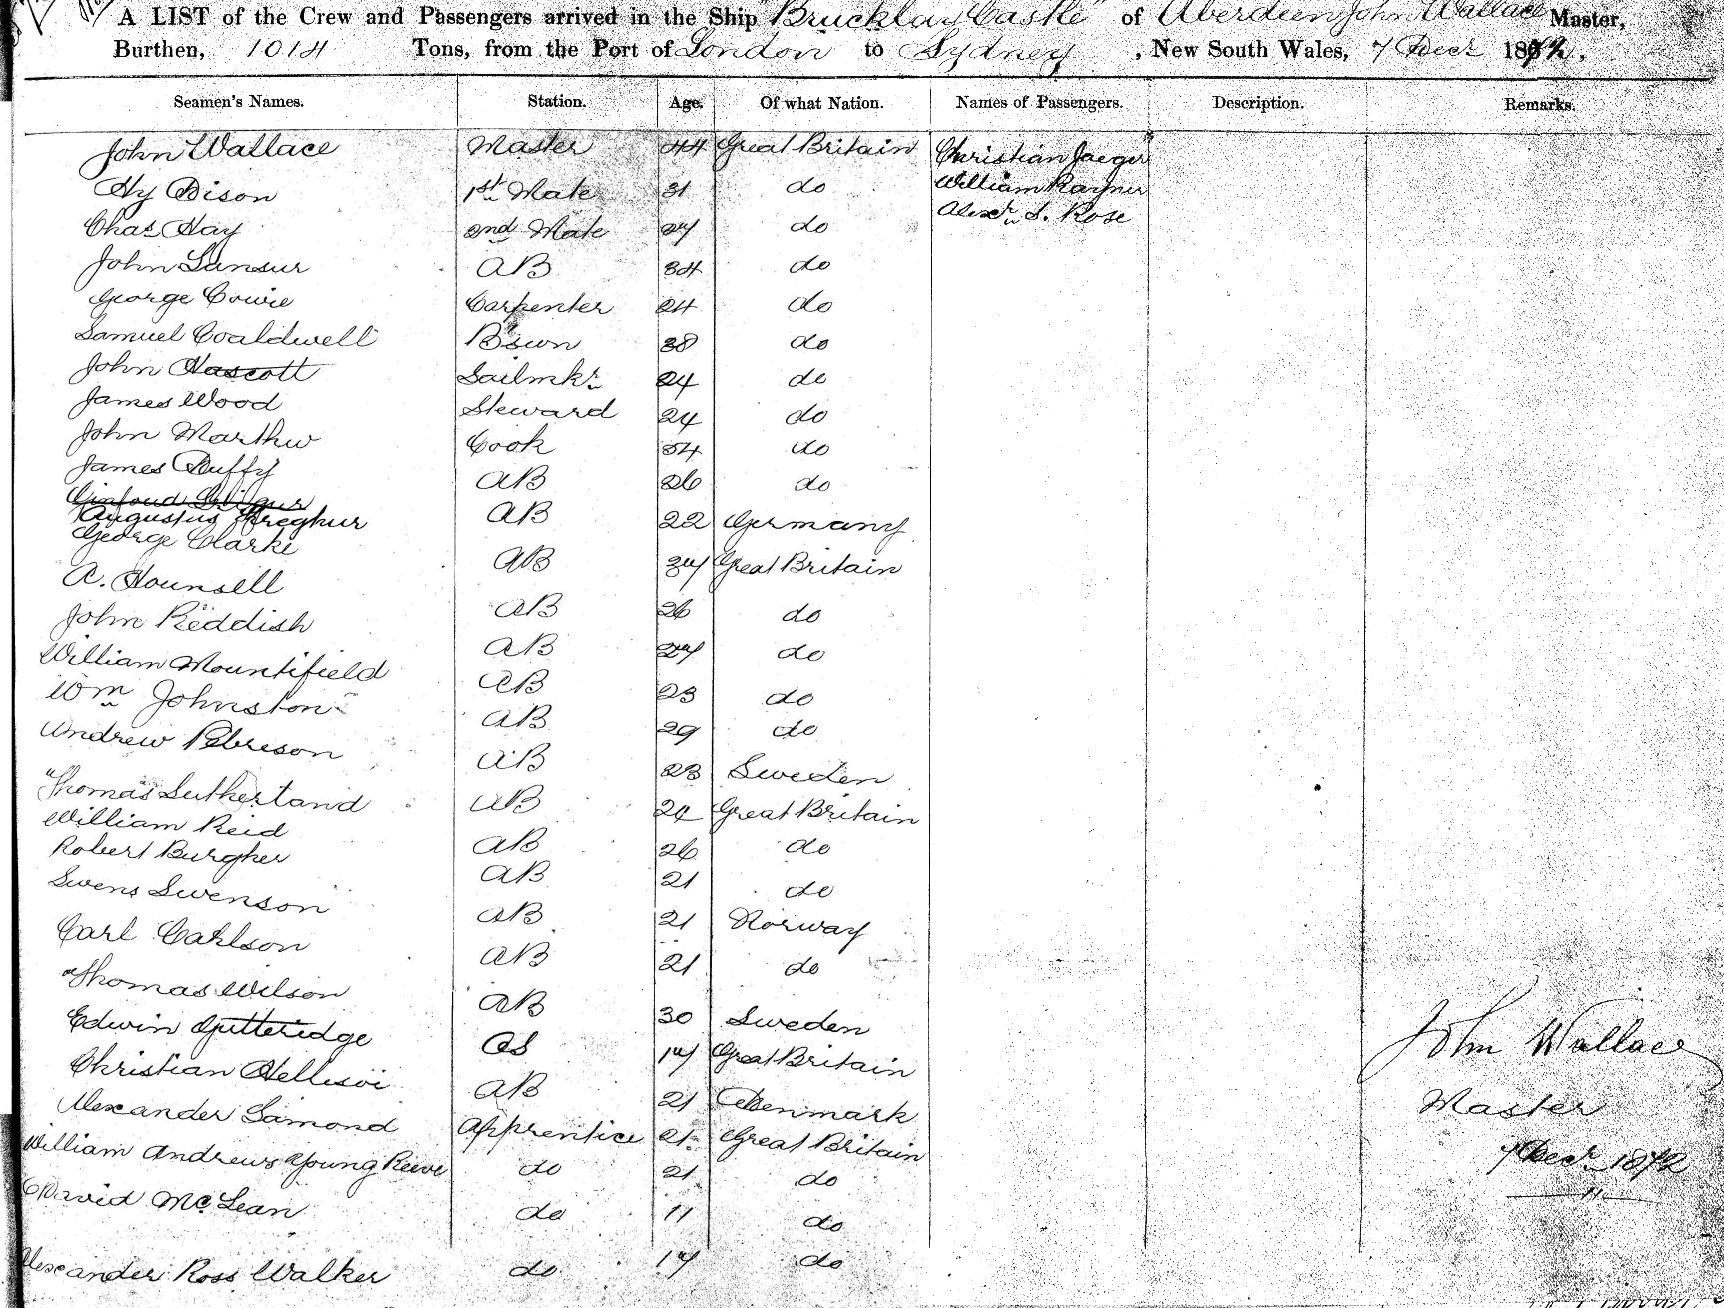 A LIST of the Crew and Passengers arrived in the Ship "Brucklay Castle" of Aberdeen, John Wallace Master,
Burthen, 1014 Tons, from the Port of London to Sydney, New South Wales, 7 Decr 1872.
Seamen's Names. Station. Age. Of what Nation. Names of Passengers. Description. Remarks.
John Wallace Master 44 Great Britain Christian Jaeger
Hy Dison 1st Mate 31 do William Rayner
Chas Hay 2nd Mate 27 do Alexr S. Rose
John Lansur AB 34 do
George Cowie Carpenter 24 do
Samuel Coaldwell B'swn 38 do
John Hascott Sailmkr 24 do
James Wood Steward 24 do
John Marthw Cook 54 do
James Duffy AB 26 do
Augustus AB 22 Germany
George Clarke AB 37 Great Britain
A. Hounsell AB 26 do
John Reddish AB 27 do
William Mountifield AB 23 do
Wm Johnston AB 29 do
Andrew AB 23 Sweden
Thomas Sutherland AB 24 Great Britain
William Reid AB 26 do
Robert Burgher AB 21 do
Swens Swenson AB 21 Norway
Carl Carlson AB 21 do
Thomas Wilson AB 30 Sweden
Edwin Gutteridge OS 17 Great Britain
Christian Hellesoi AB 21 Denmark
Alexander Lamond Apprentice 21 Great Britain
William Andrews Young Reeve do 21 do
David McLean do 17 do
Alexander Ross Walker do 17 do
John Wallace
Master
7 Decr 1872